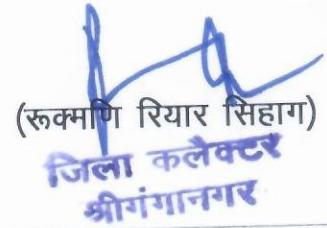 (रूक्मणि रियार सिहाग)
जिला कलैक्टर
श्रीगंगानगर